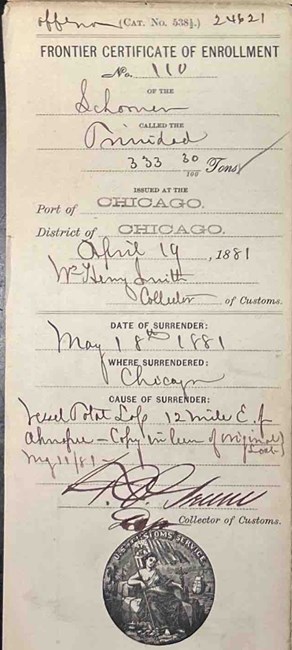 (CAT. No. 538½.) 24621
FRONTIER CERTIFICATE OF ENROLLMENT
No. 110
OF THE
Schooner
CALLED THE
Trinidad
333 30/100 Tons
ISSUED AT THE
Port of CHICAGO.
District of CHICAGO.
April 19, 1881
Wm Henry Smith
Collector of Customs.
DATE OF SURRENDER:
May 18th 1881
WHERE SURRENDERED:
Chicago
CAUSE OF SURRENDER:
Vessel Total Loss 12 mile E. of
Ahnapee - Copy in lieu of original
Lost)
My 11/81-
Collector of Customs.
U.S. CUSTOMS SERVICE